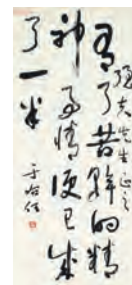 夫先生正之
有了苦幹的精
神事情便已成
了一半
于右任